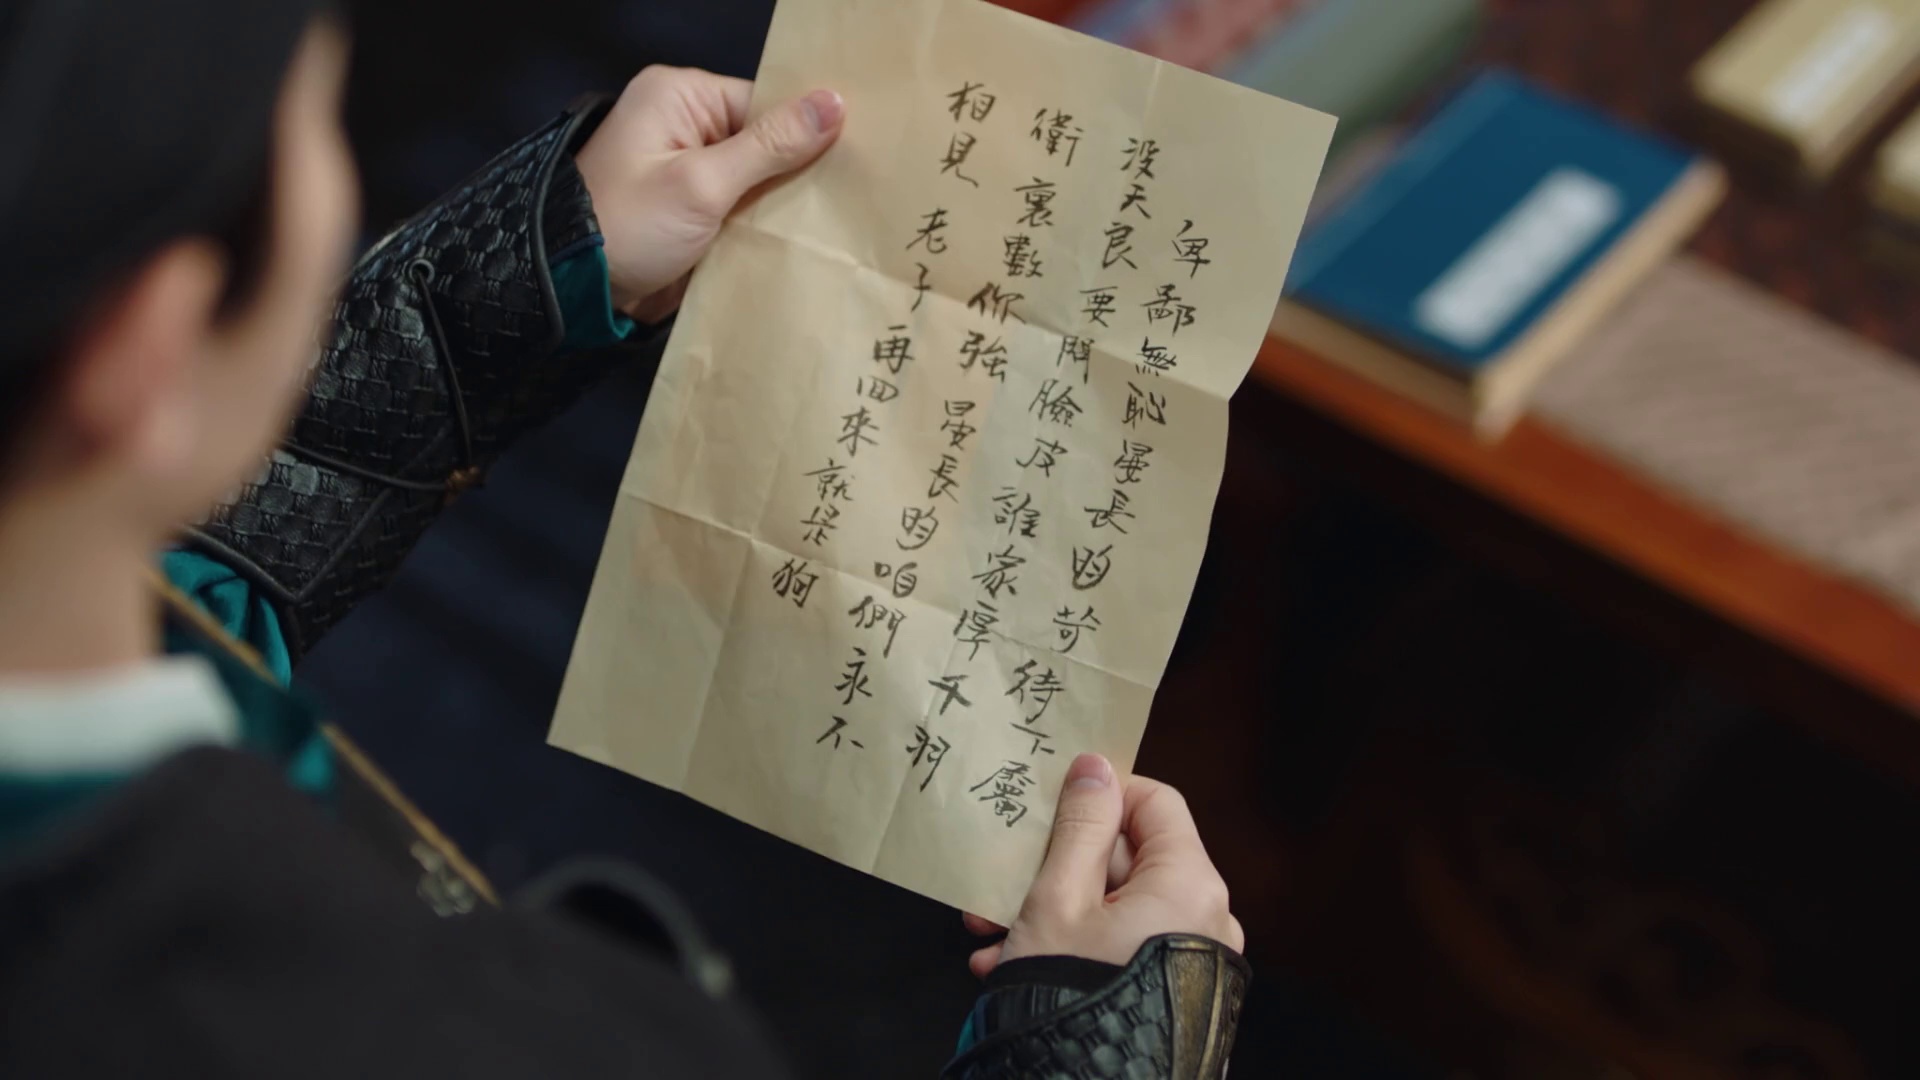 卑鄙無恥晏長昀苛待下屬
没天良要問臉皮誰家厚千羽
衛裏數你強晏長昀咱們永不
相見老子再回來就是狗